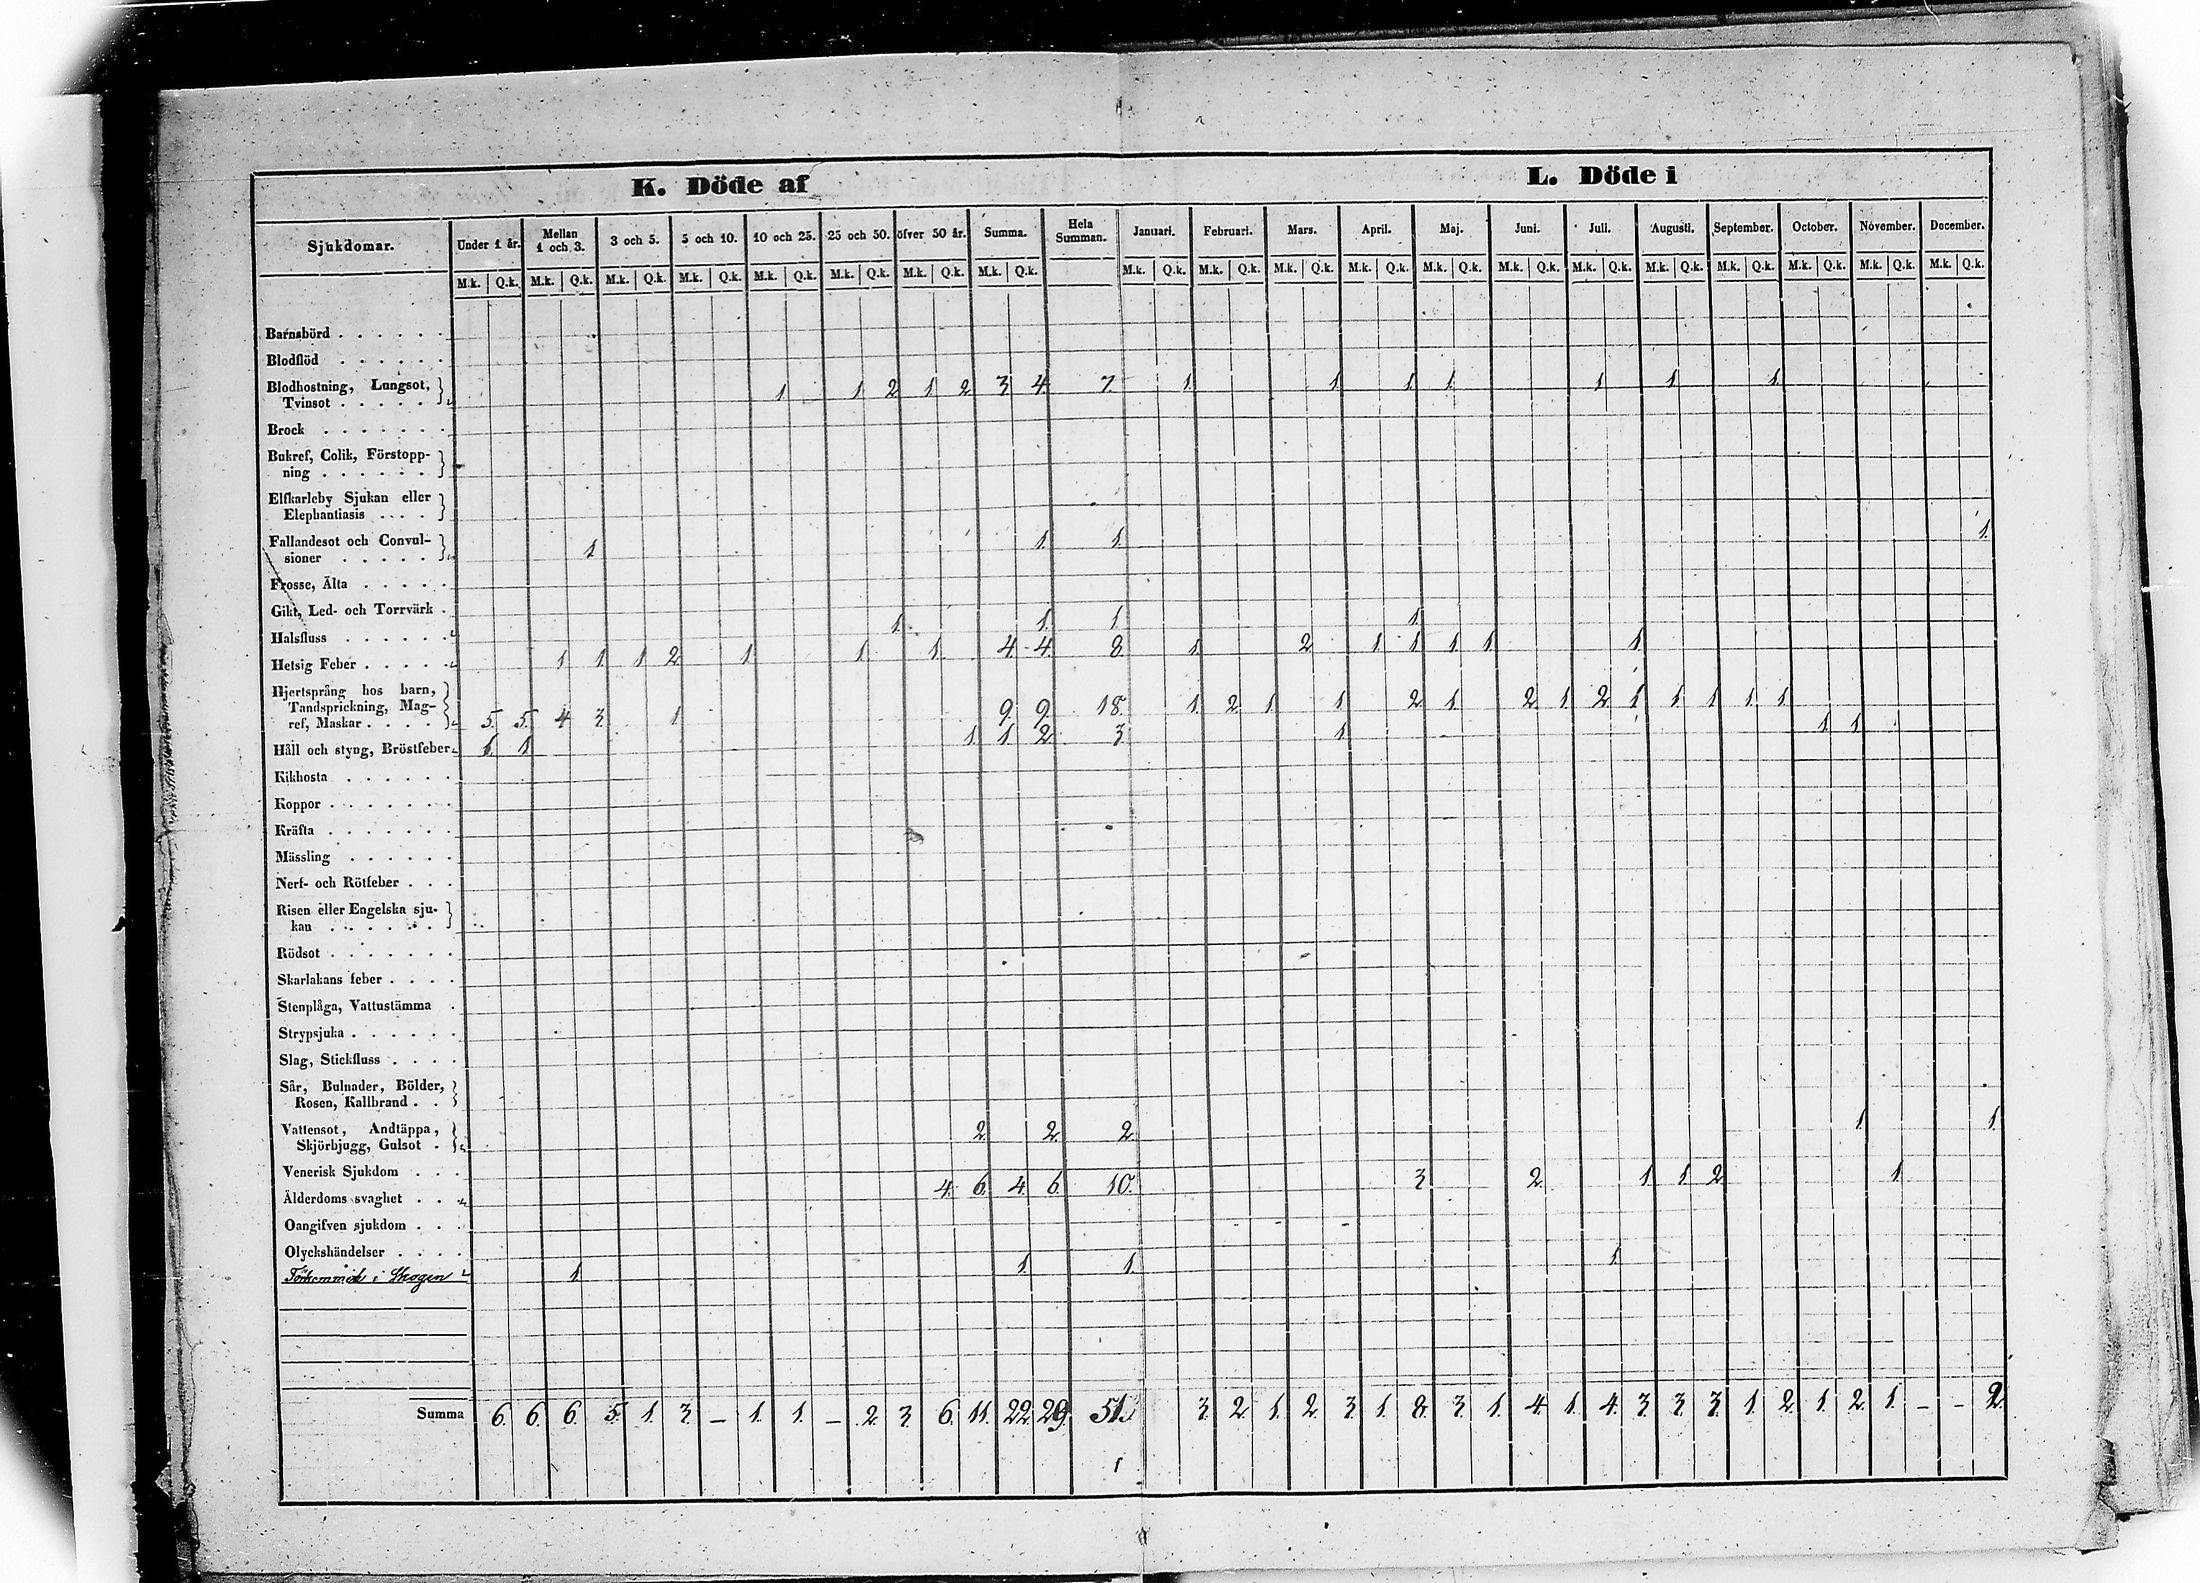 K. Döde af L. Döde i
Sjukdomar. Under 1 år. Mellan 1 och 3. 3 och 5. 5 och 10. 10 och 25. 25 och 50. öfver 50 år. Summa. Hela Summan. Januari. Februari. Mars. April. Maj. Juni. Juli. Augusti. September. October. November. December.
M.k. Q.k. M.k. Q.k. M.k. Q.k. M.k. Q.k. M.k. Q.k. M.k. Q.k. M.k. Q.k. M.k. Q.k. M.k. Q.k. M.k. Q.k. M.k. Q.k. M.k. Q.k. M.k. Q.k. M.k. Q.k. M.k. Q.k. M.k. Q.k. M.k. Q.k. M.k. Q.k. M.k. Q.k. M.k. Q.k.
Barnsbörd . . . . . .
Blodflöd . . . . . .
Blodhostning, Lungsot,
Tvinsot . . . . . 1 1 2 1 2 3 4 7. 1 1 1 1 1 1 1
Brock . . . . . . .
Bukref, Colik, Förstopp-
ning . . . . . .
Elfkarleby Sjukan eller
Elephantiasis . . . .
Fallandesot och Convul-
sioner . . . . . 1 1 1 1.
Frosse, Älta . . . . .
Gikt, Led- och Torrvärk .
Halsfluss . . . . . . 1 1 1 1
Hetsig Feber . . . . . 1 1 1 2 1 1 1 4 4 8. 1 2 1 1 1 1 1
Hjertsprång hos barn,
Tandsprickning, Mag-
ref, Maskar . . . . 5. 5. 4 3. 1 9. 9. 18. 1 2 1 1 2 1 2 1 2 1 1 1 1 1
Håll och styng, Bröstfeber 1. 1 1. 1 2 3 1 1 1
Kikhosta . . . . . .
Koppor . . . . . . .
Kräfta . . . . . . .
Mässling . . . . . .
Nerf- och Rötfeber . . .
Risen eller Engelska sju-
kan . . . . . .
Rödsot . . . . . . .
Skarlakans feber . . . .
Stenplåga, Vattustämma .
Strypsjuka . . . . . .
Slag, Stickfluss . . . .
Sår, Bulnader, Bölder,
Rosen, Kallbrand . . .
Vattensot, Andtäppa,
Skjörbjugg, Gulsot . 2 2 2 1 1
Venerisk Sjukdom . . .
Ålderdoms svaghet . . . 4. 6. 4. 6. 10. 3 2 1 1 2 1
Oangifven sjukdom . . .
Olyckshändelser . . . .
i Skogen 1 1. 1. 1
Summa 6. 6. 6. 5. 1. 3. – 1. 1. – 2. 3. 6. 11. 22. 29 51. 3. 2. 1. 2. 3. 1. 8. 3. 1. 4. 1. 4. 3. 3. 3. 1. 2. 1. 2. 1. – – 2.